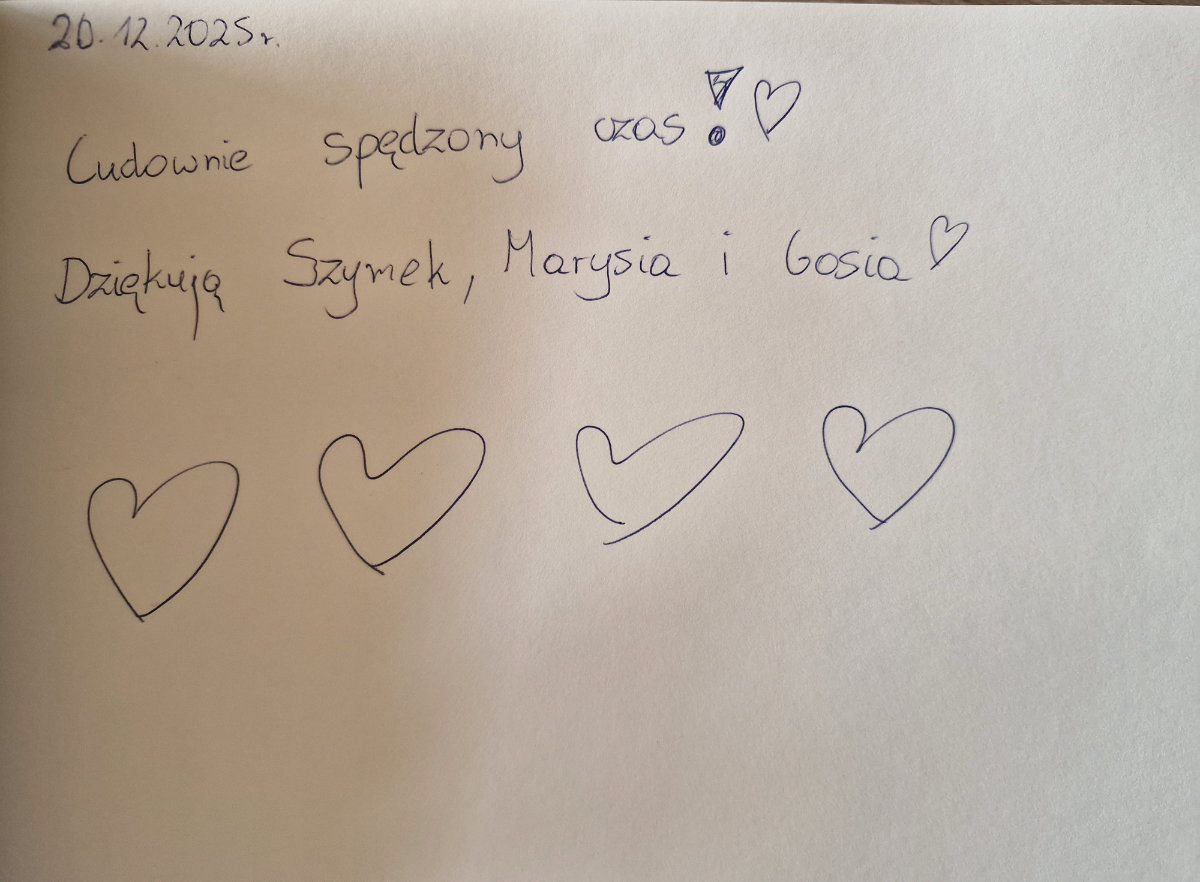 20.12.2025r.
Cudownie spędzony czas!♡
Dziękują Szymek, Marysia i Gosia♡